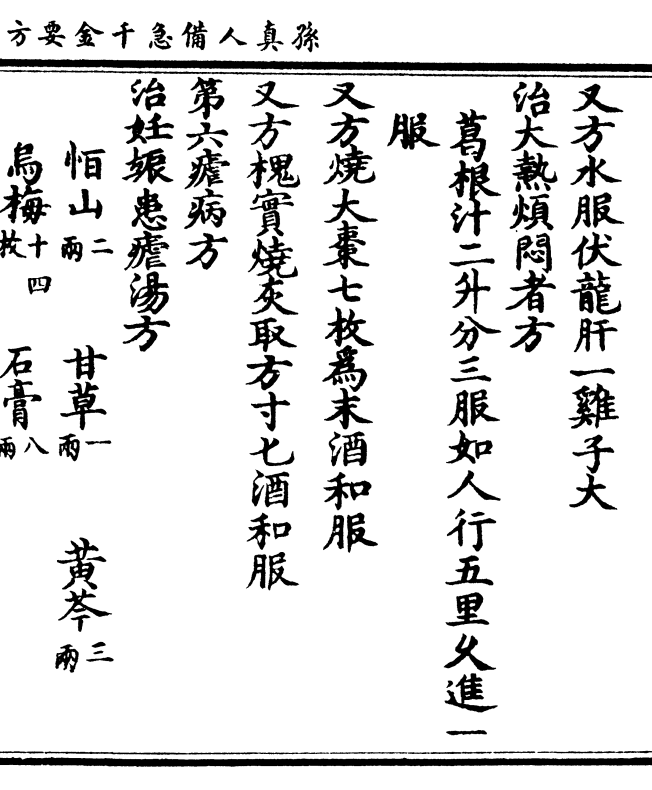 孫真人備急千金要方
又方水服伏龍肝一雞子大
治大熱煩悶者方
葛根汁二升分三服如人行五里久進一
服
又方燒大棗七枚為末酒和服
又方槐實燒灰取方寸匕酒和服
第六瘧病方
治妊娠患瘧湯方
恒山二兩 甘草一兩 黃芩三兩
烏梅十四枚 石膏八兩